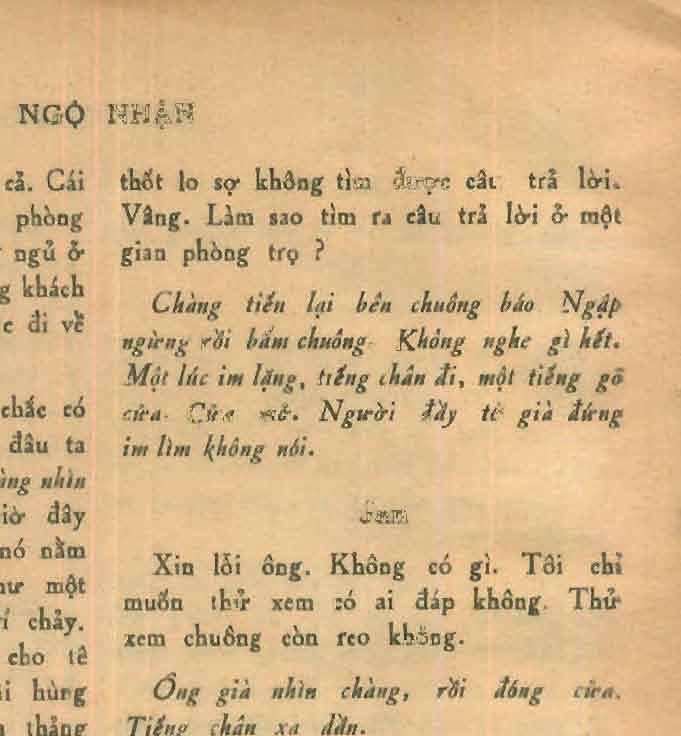 NGỘ NHẬN
cả. Cái
phòng
ngủ ở
khách
đi về
chắc có
đâu ta
nhìn
đây
nó nằm
một
chảy.
cho tê
hùng
thẳng
thốt lo sợ không tìm được câu trả lời.
Vâng. Làm sao tìm ra câu trả lời ở một
gian phòng trọ ?
Chàng tiến lại bên chuông báo Ngập
ngừng rồi bấm chuông. Không nghe gì hết.
Một lúc im lặng, tiếng chân đi, một tiếng gõ
cửa. Cửa mở. Người đầy tớ già đứng
im lìm không nói.
Jan
Xin lỗi ông. Không có gì. Tôi chỉ
muốn thử xem có ai đáp không. Thử
xem chuông còn reo không.
Ông già nhìn chàng, rồi đóng cửa.
Tiếng chân xa dần.